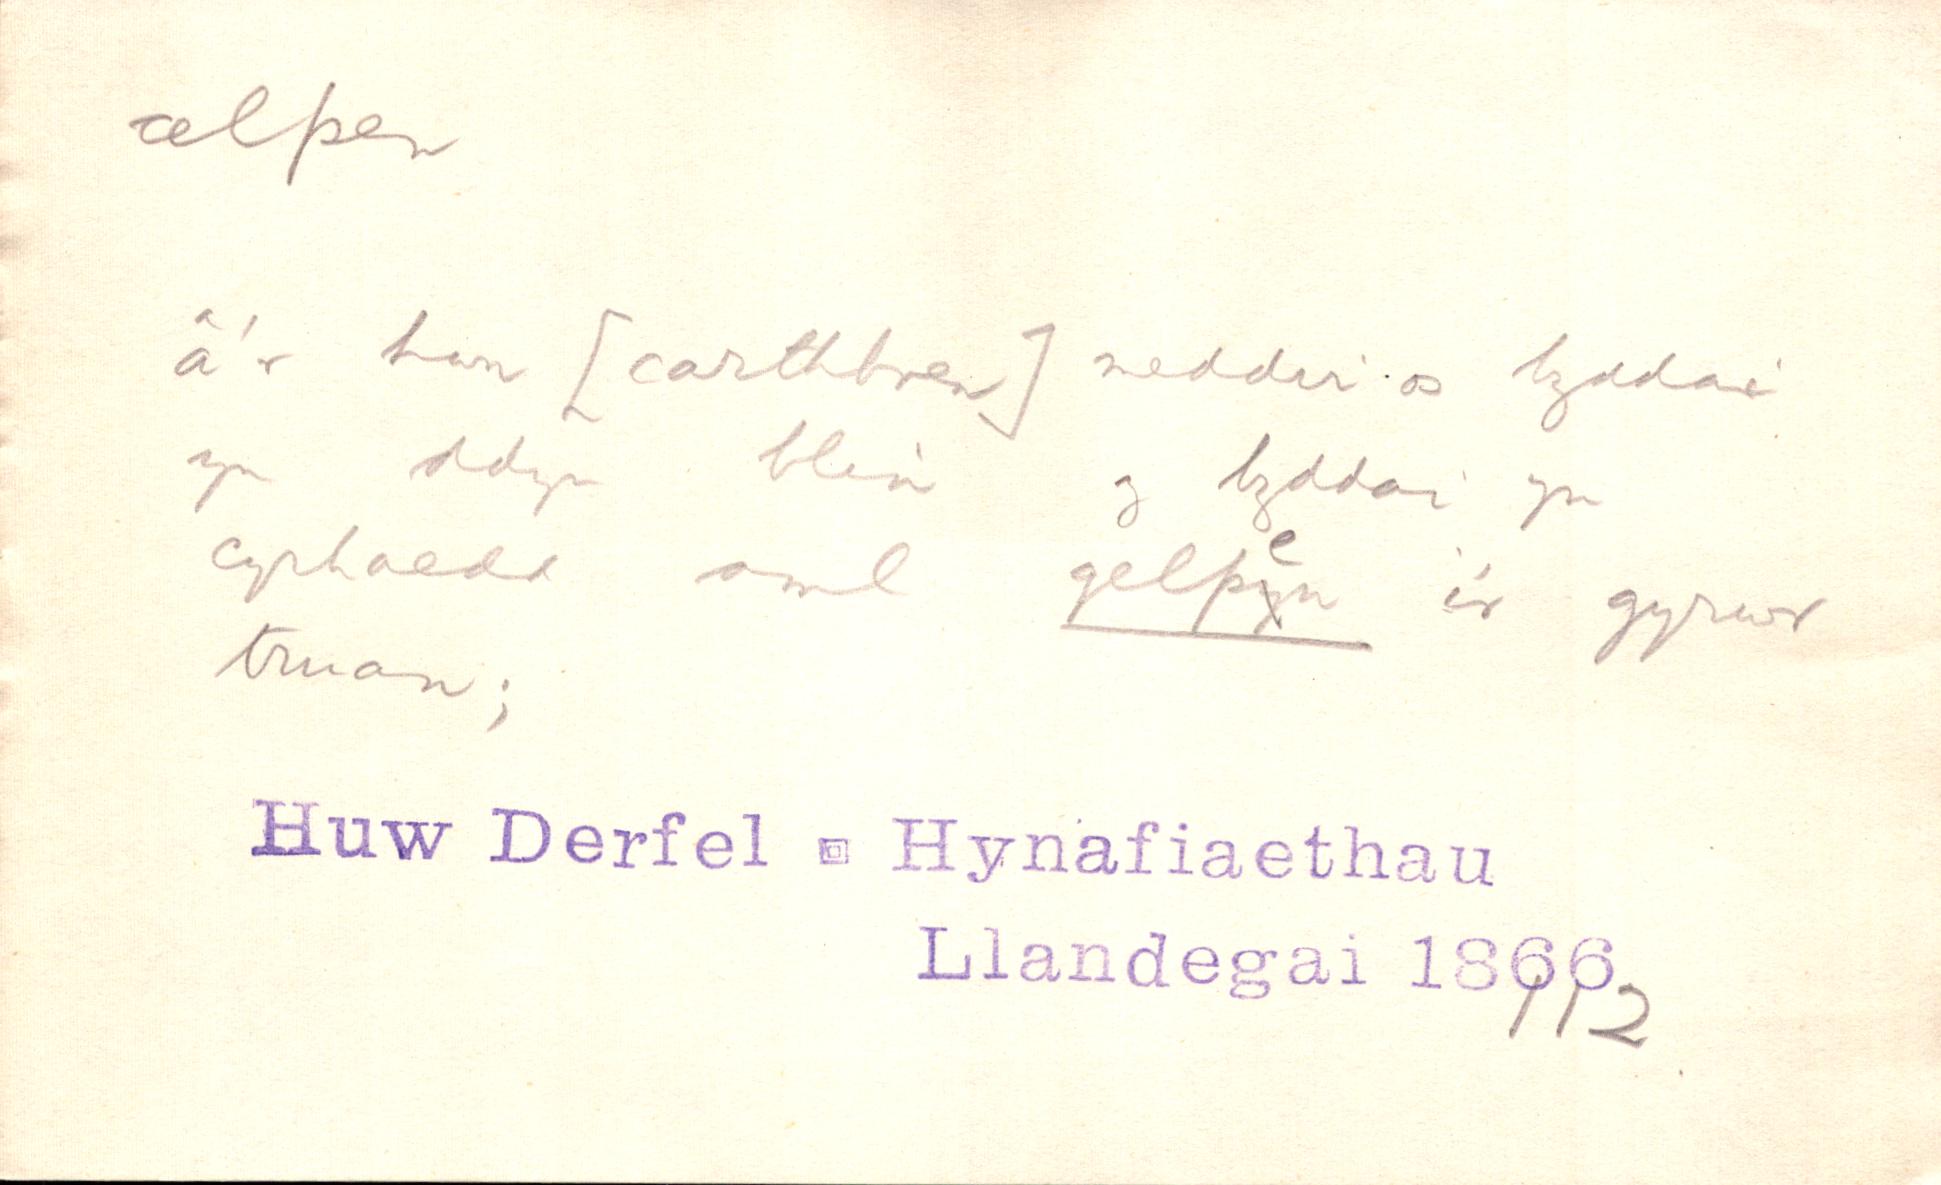 celpen
â'r hwn [carthbren] neddir os byddai
yn ddyn blin y byddai yn
cyrhaedd aml gelpen i'r gyrwr
truan;
Huw Derfel - Hynafiaethau
Llandegai 1866
112